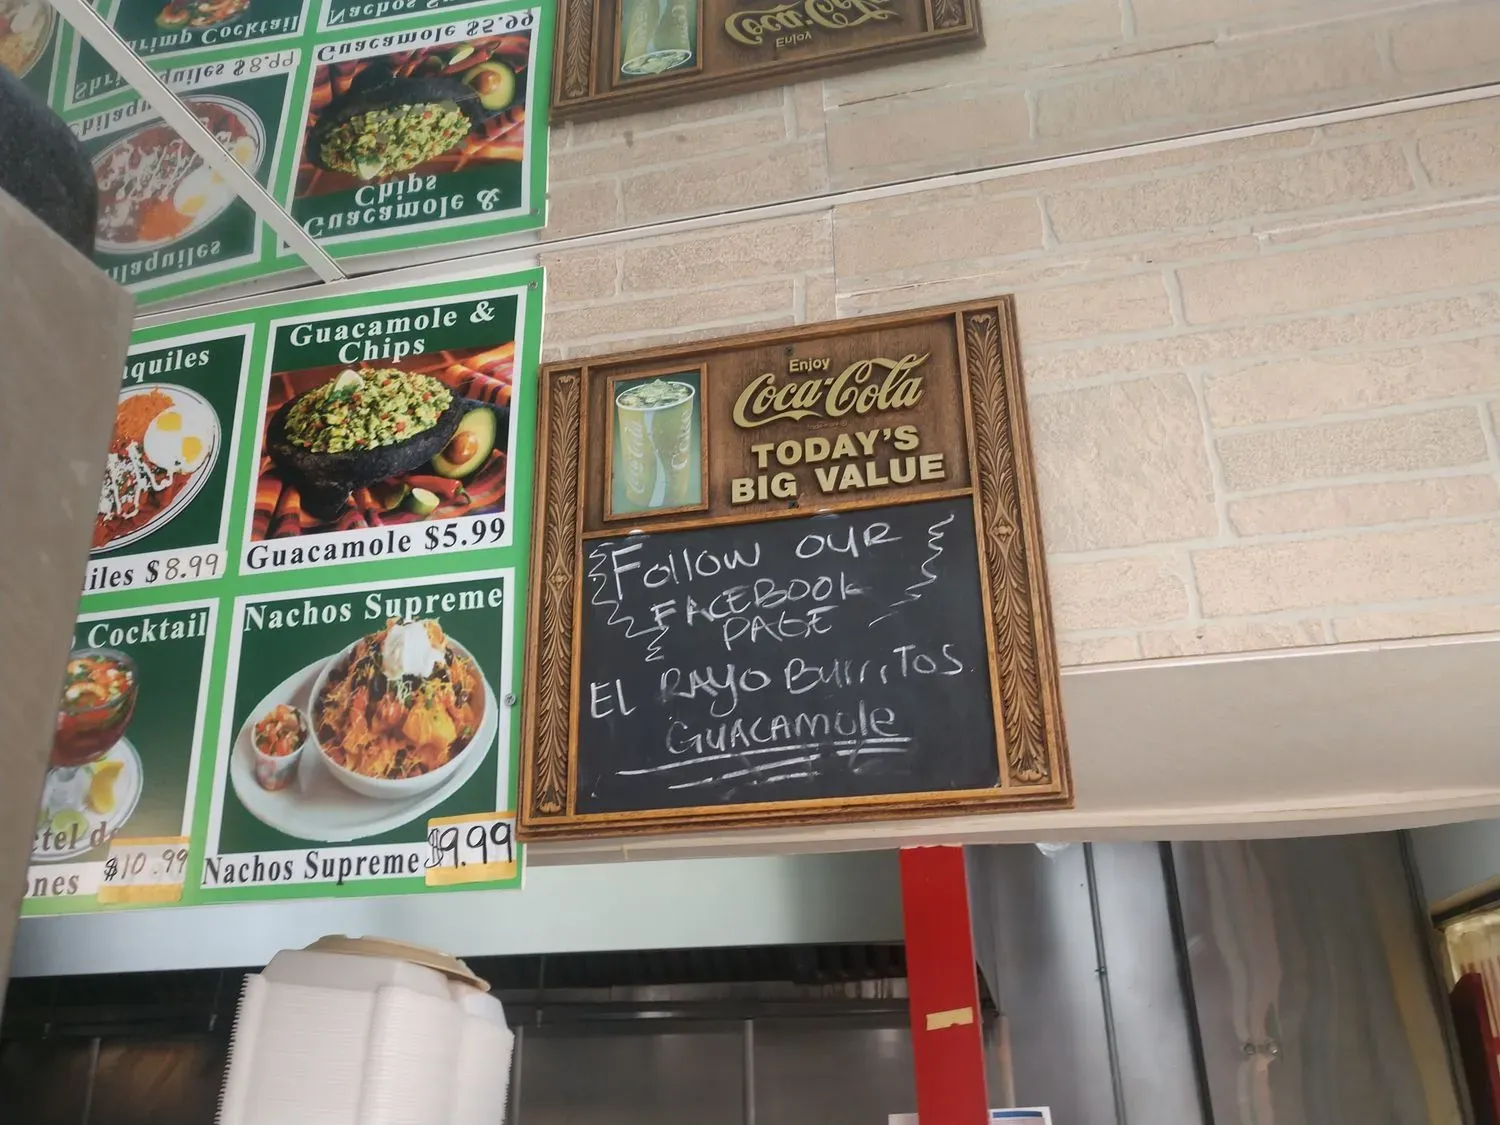 Shrimp Cocktail
Nachos Su
Chilaquiles $8.99
Guacamole $5.99
Chips
Guacamole &
ilaquiles
Enjoy
Coca-Cola
aquiles
iles $8.99
Guacamole &
Chips
Guacamole $5.99
Cocktail
ctel d
ones $10.99
Nachos Supreme
Nachos Supreme $9.99
Enjoy
Coca-Cola
TODAY'S
BIG VALUE
Follow OUR
FACEBOOK
PAGE
EL RAYO BurriTos
GUACAMole